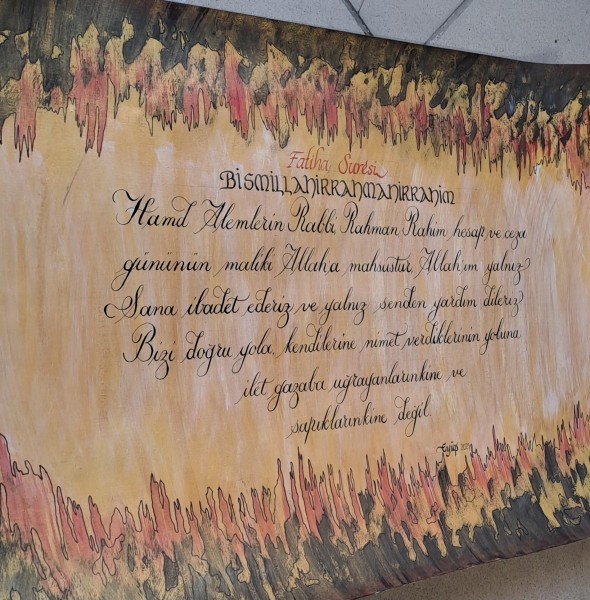 Fatiha Suresi
BİSMİLLAHİRRAHMANİRRAHİM
Hamd Alemlerin Rabbi Rahman, Rahim hesap, ve ceza
gününün maliki Allaha mahsustur, Allah'ım yalnız
Sana ibadet ederiz ve yalnız senden yardım dileriz
Bizi doğru yola, kendilerine nimet verdiklerinin yoluna
ilet gazaba uğrayanlarınkine ve
sapıklarınkine değil.
Eyüp